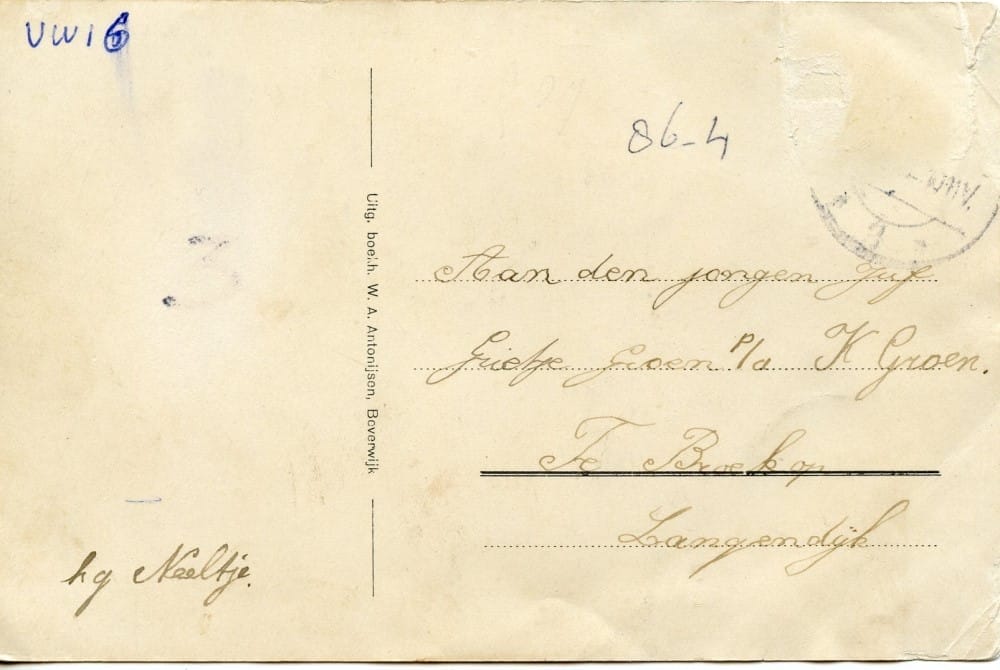 UW16
86-4
3
Uitg. boekh. W. A. Antonijsen, Beverwijk
Aan den jongen Juf
Grietje Groen p/a K Groen.
Te Broek op
Langendijk
hg Neeltje.